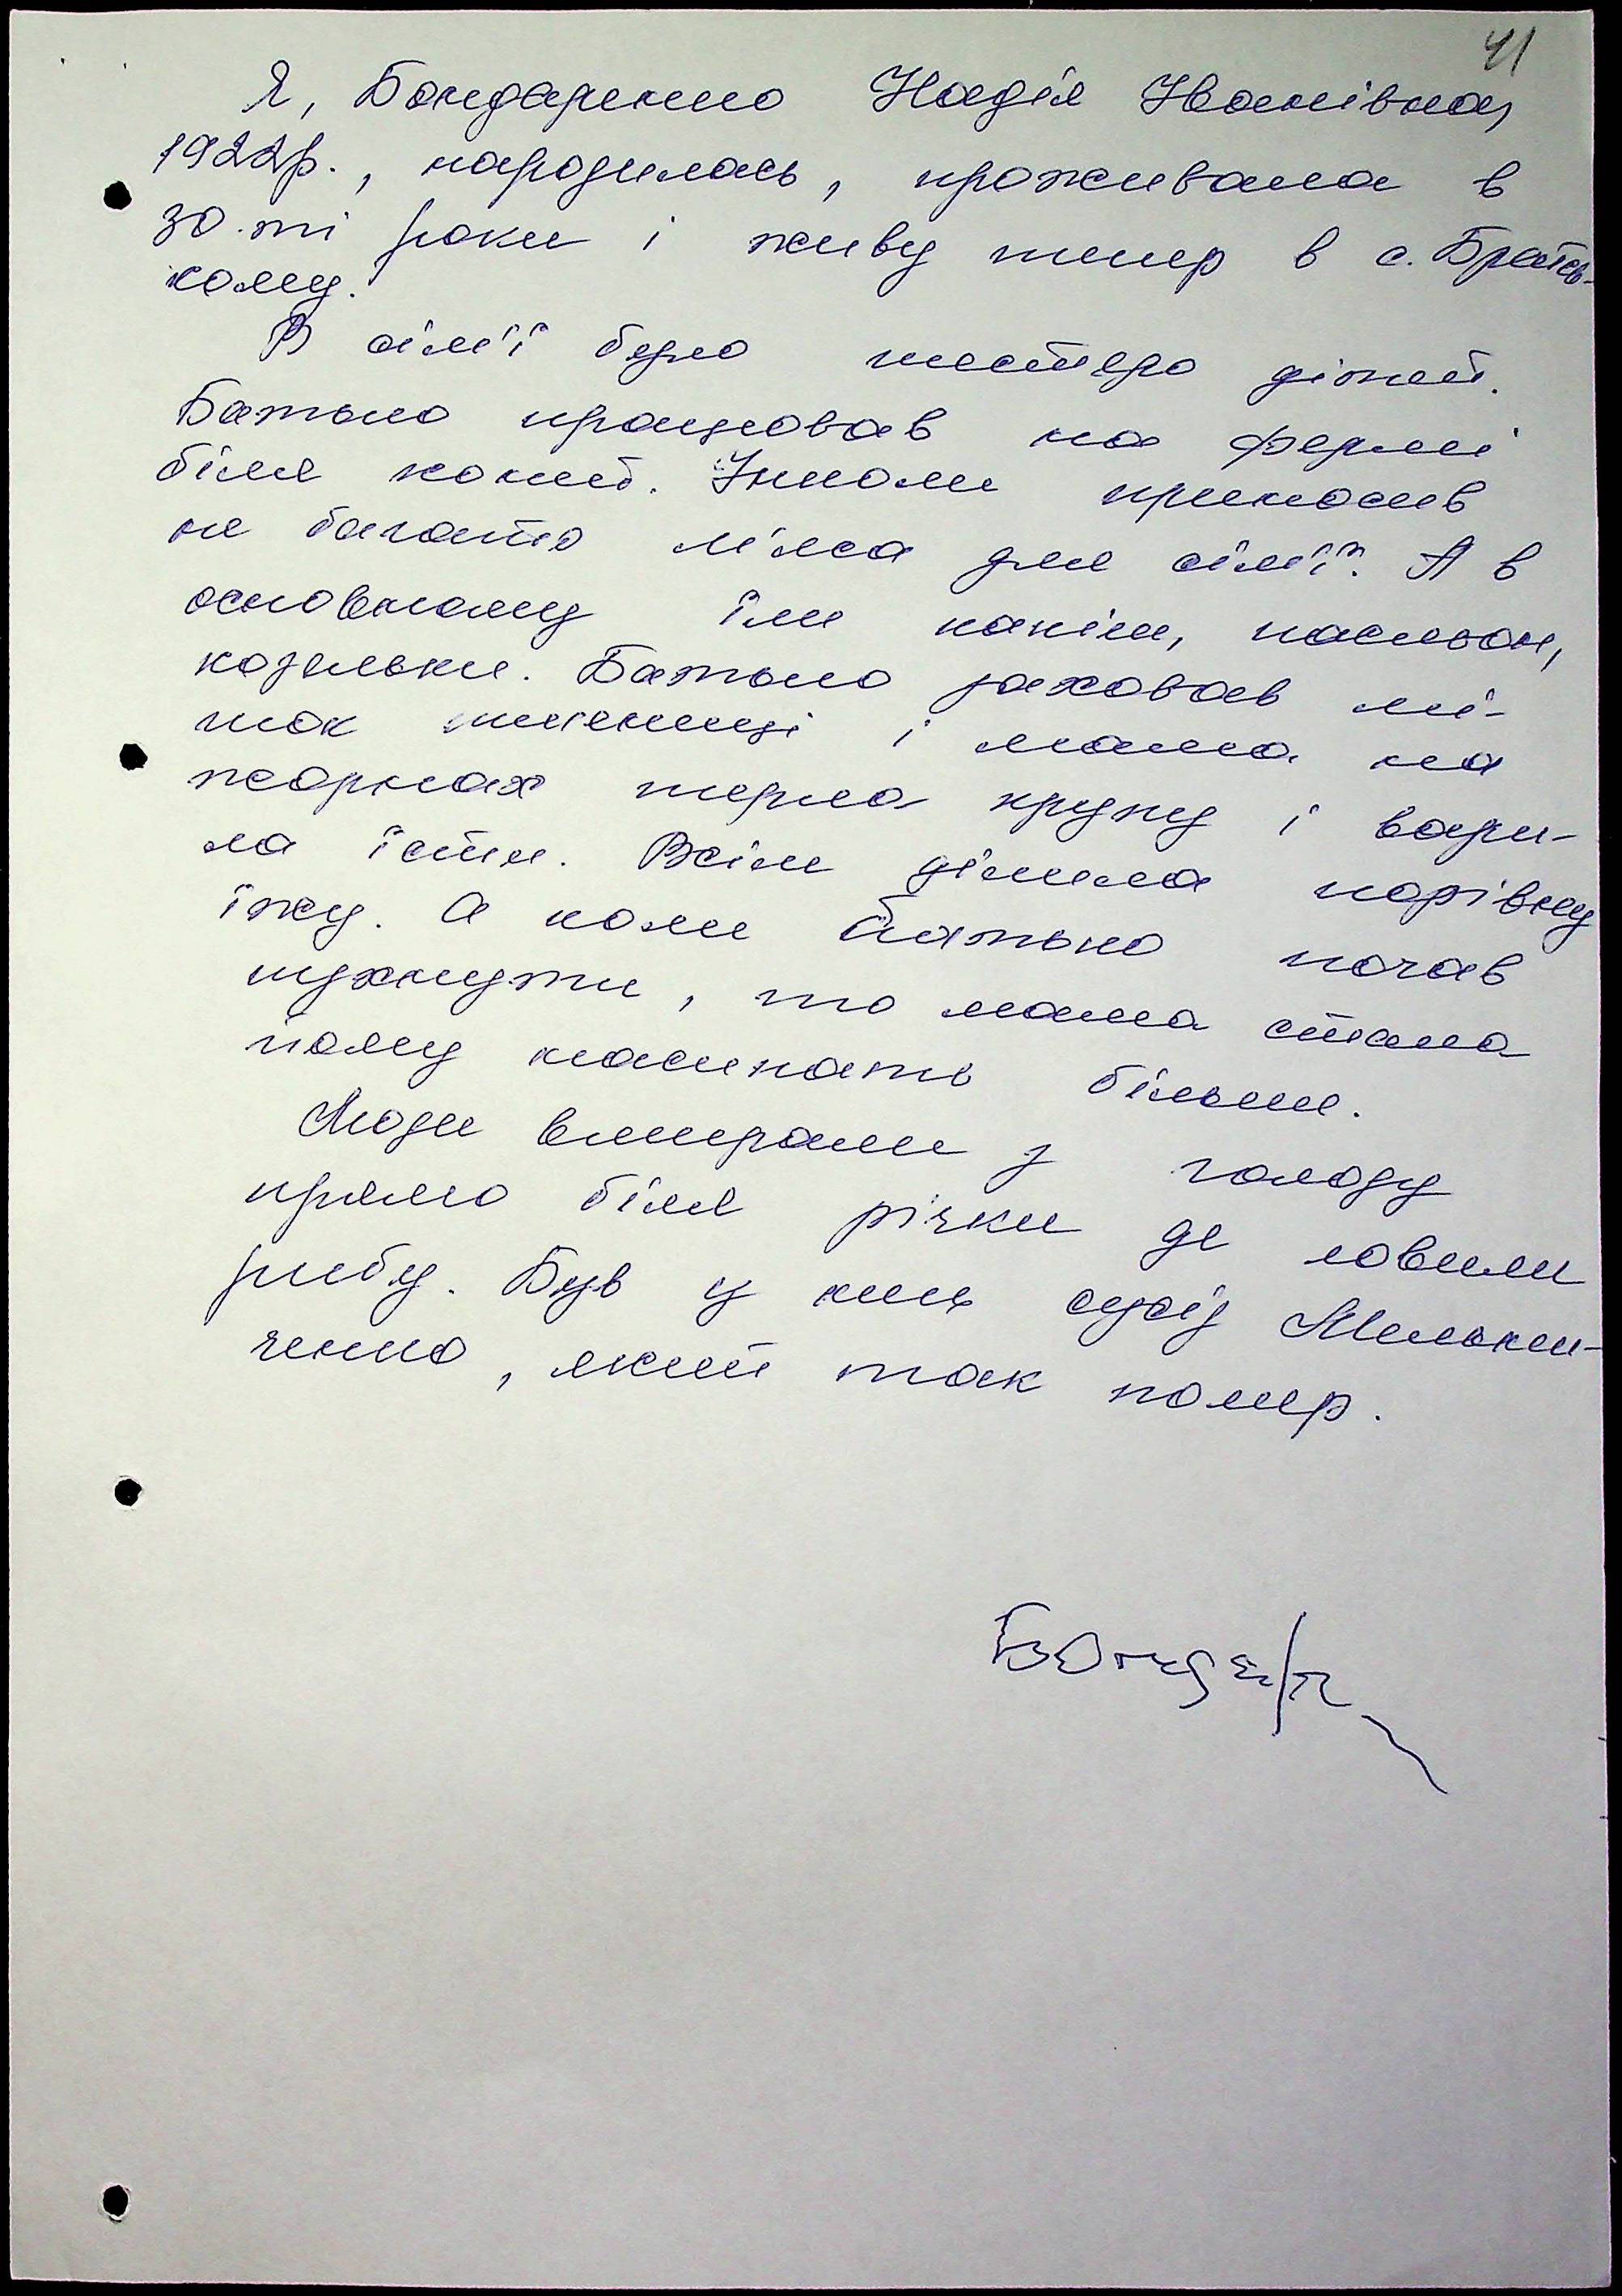 41
Я, Бондаренко Надія Іванівна,
1922р., народилась, проживала в
30-ті роки і живу тепер в с. Братсь-
кому.
В сім'ї було шестеро дітей.
Батько працював на фермі
біля коней. Інколи приносив
не багато м'яса для сім'ї. А в
основному їли качки, пасльон,
козельки. Батько заховав мі-
шок пшениці і мама на
жорнах терла крупу і вари-
ла їсти. Всім ділила порівну
їжу. А коли батько почав
пухнути, то мама стала
йому насипать більше.
Люди вмирали з голоду
прямо біля річки де ловили
рибу. Був у них сусід Мельни-
ченко, який так помер.
Бондар